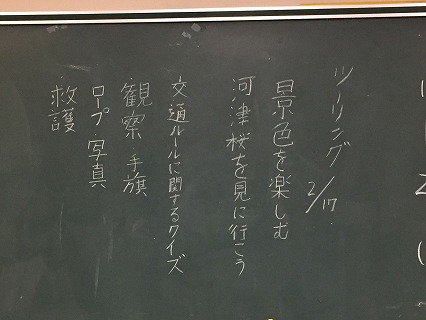 ツーリング 2/17
景色を楽しむ
河津桜を見に行こう
交通ルールに関するクイズ
観察 手旗
ロープ 写真
救護